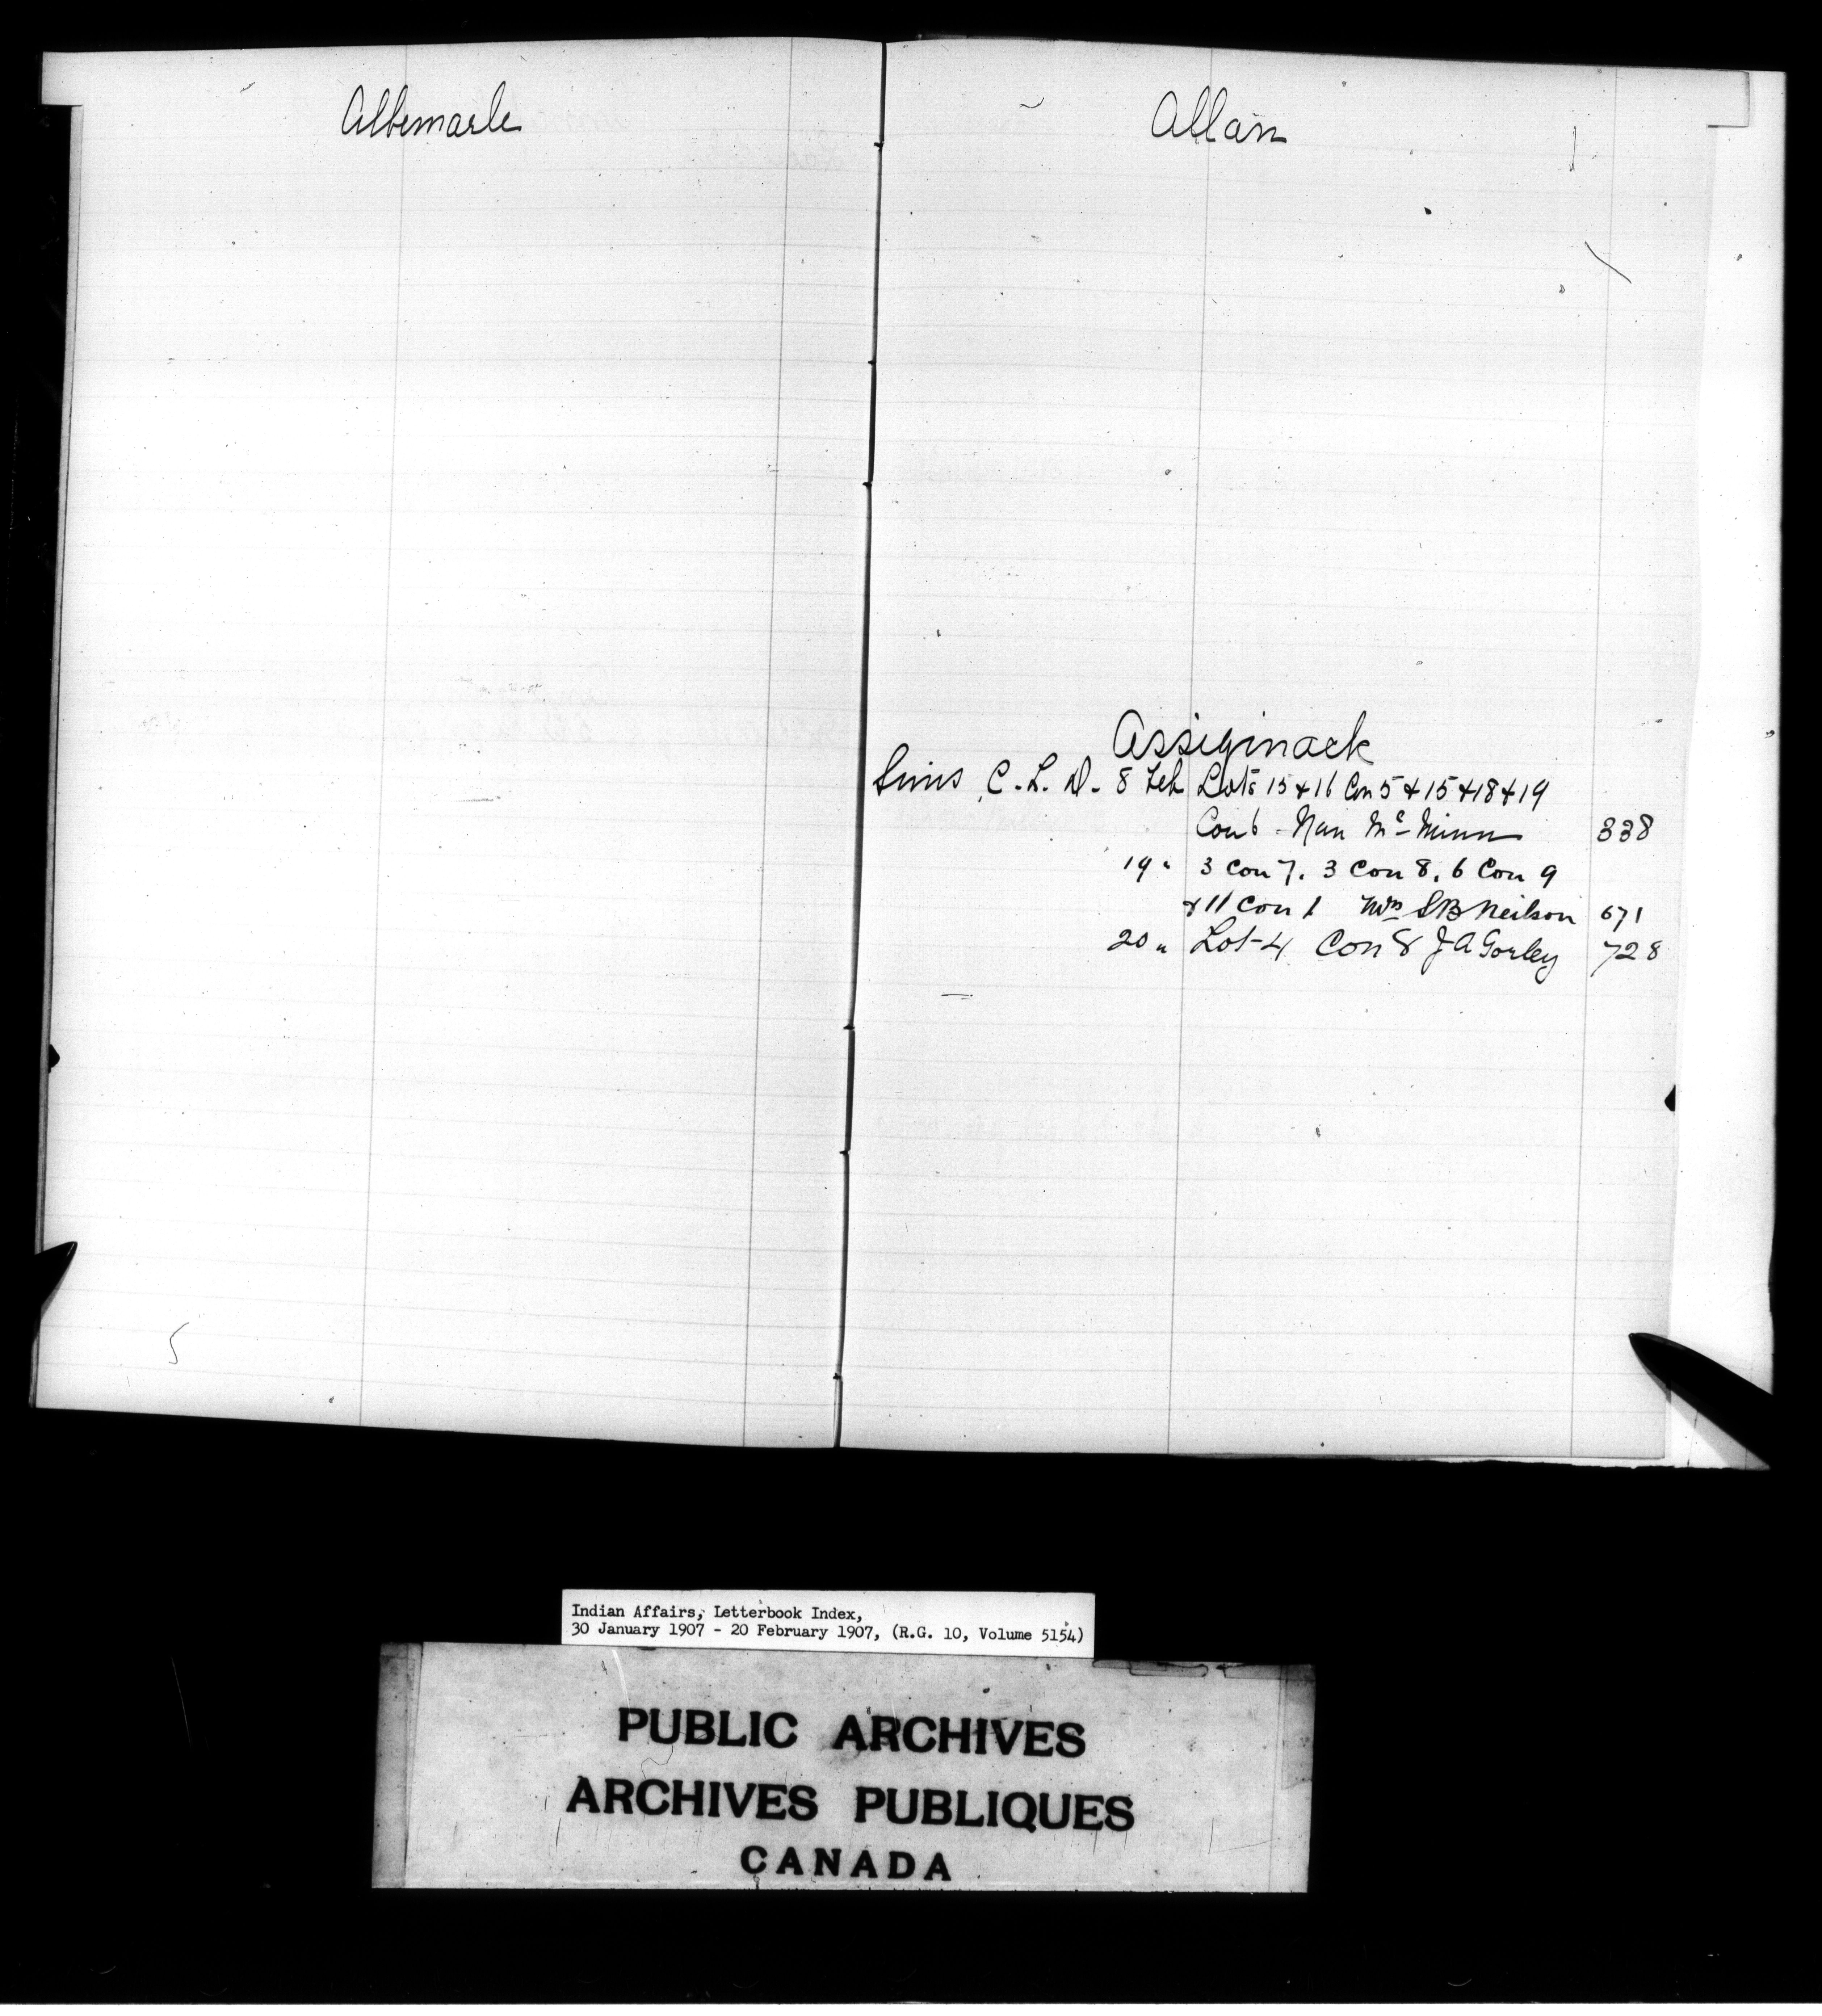 Albemarle
Allan
Assiginack
Sims C. L. D. 8 Feb Lots 15 & 16 Con 5 & 15 & 18 & 19
Con 6 - Nan Mc Minn 338
19 " 3 Con 7. 3 Con 8. 6 Con 9
& 11 Con 1 Mrs S B Neilson 671
20 " Lot 4 Con 8 J A Gorley 728
5
Indian Affairs, Letterbook Index,
30 January 1907 - 20 February 1907, (R.G. 10, Volume 5154)
PUBLIC ARCHIVES
ARCHIVES PUBLIQUES
CANADA